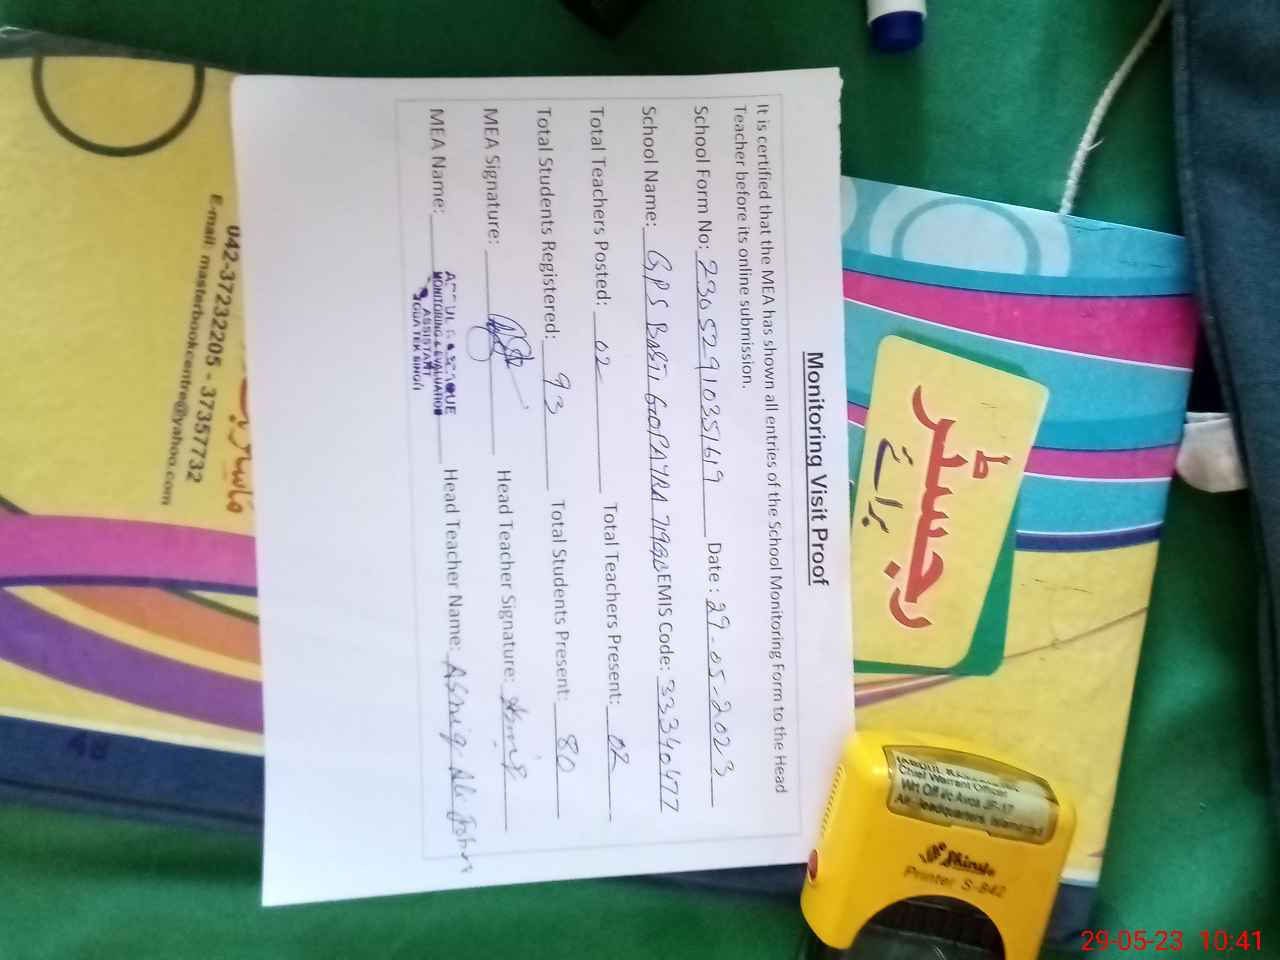 Monitoring Visit Proof
It is certified that the MEA has shown all entries of the School Monitoring Form to the Head
Teacher before its online submission.
School Form No: 23052910351619 Date : 29-05-2023
School Name: GPS Basti EMIS Code: 33340477
Total Teachers Posted: 02 Total Teachers Present: 02
Total Students Registered: 93 Total Students Present: 80
MEA Signature: Head Teacher Signature:
MEA Name: Head Teacher Name: Ali
MONITORING & EVALUATION
ASSISTANT
TEK SINGH
رجسٹر
برائے
042-37232205 - 37357732
E-mail: masterbookcentre@yahoo.com
Chief Warrant Officer
Wrt Off i/c Avos JF-17
Air Headquarters, Islamabad
Shiny
Printer S-842
29-05-23 10:41